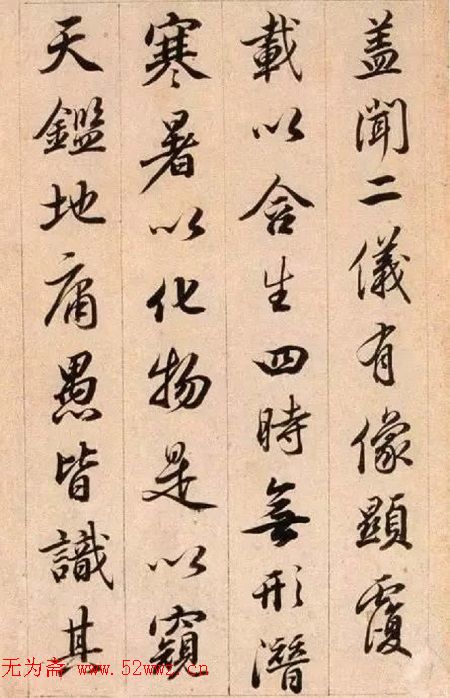 盖聞二儀有像顯覆
載以含生四時無形潛
寒暑以化物是以窺
天鑑地庸愚皆識其
无为斋 www.52wwz.cn